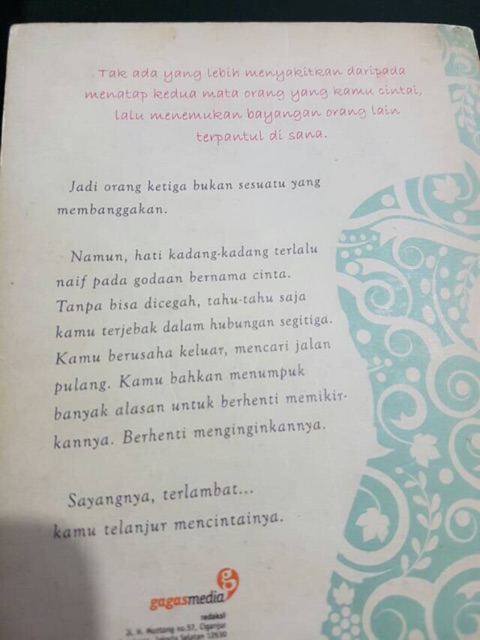 Tak ada yang lebih menyakitkan daripada
menatap kedua mata orang yang kamu cintai,
lalu menemukan bayangan orang lain
terpantul di sana.
Jadi orang ketiga bukan sesuatu yang
membanggakan.
Namun, hati kadang-kadang terlalu
naif pada godaan bernama cinta.
Tanpa bisa dicegah, tahu-tahu saja
kamu terjebak dalam hubungan segitiga.
Kamu berusaha keluar, mencari jalan
pulang. Kamu bahkan menumpuk
banyak alasan untuk berhenti memikir-
kannya. Berhenti menginginkannya.
Sayangnya, terlambat...
kamu telanjur mencintainya.
gagasmedia
redaksi
Jl. H. Montong no.57, Ciganjur
Jakarta Selatan 12630